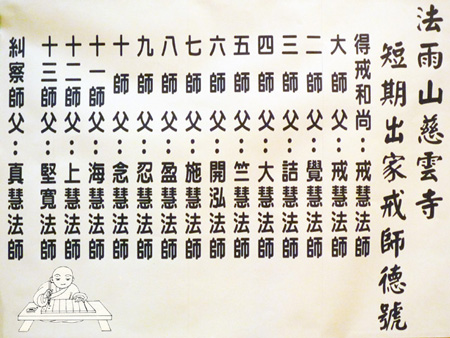 法雨山慈雲寺
短期出家戒師德號
得戒和尚：戒慧法師
大師父：戒慧法師
二師父：覺慧法師
三師父：詰慧法師
四師父：大慧法師
五師父：竺慧法師
六師父：開泓法師
七師父：施慧法師
八師父：盈慧法師
九師父：忍慧法師
十師父：念慧法師
十一師父：海慧法師
十二師父：上慧法師
十三師父：堅寬法師
糾察師父：真慧法師